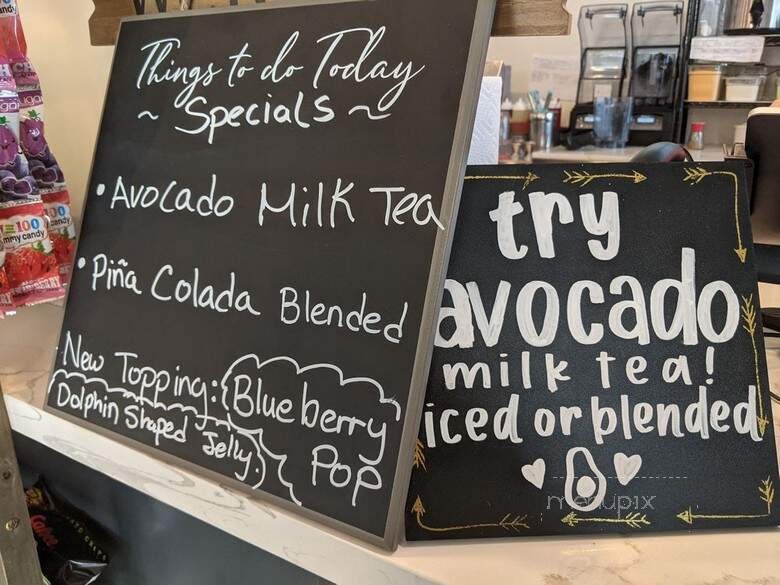 Things to do Today
~ Specials ~
• Avocado Milk Tea
• Piña Colada Blended
New Topping: Blueberry Pop
Dolphin Shaped Jelly
try
avocado
milk tea!
iced or blended
menupix
100
candy
=100
mmy candy